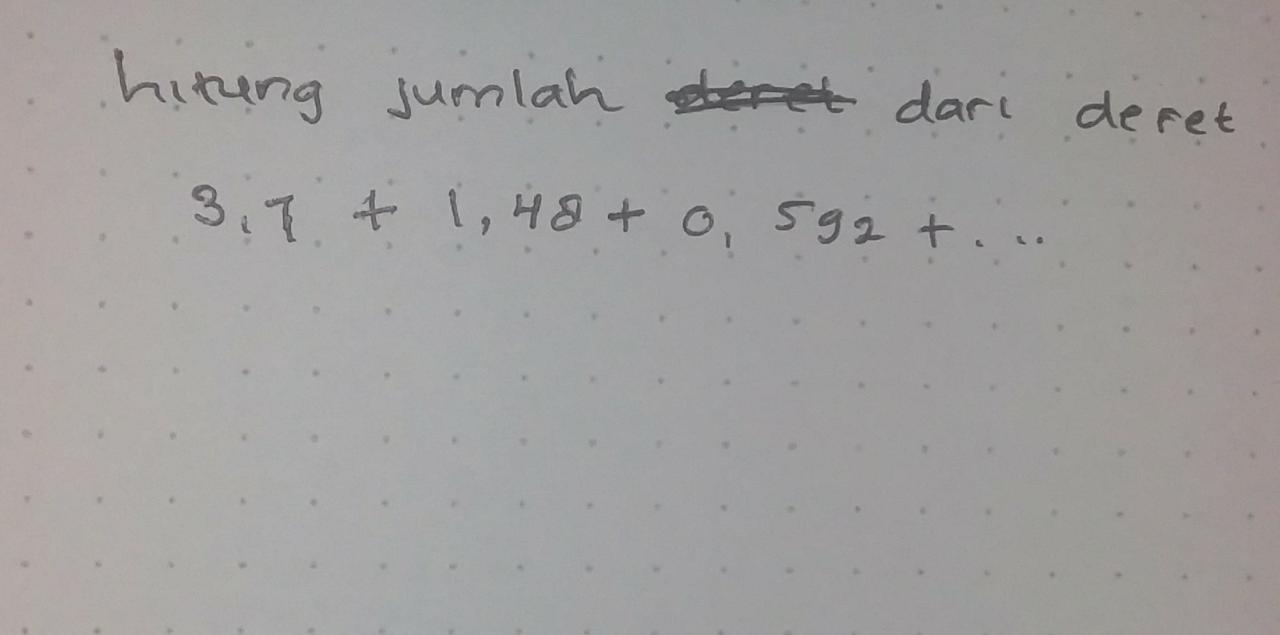 hitung jumlah dari deret
3,7 + 1,48 + 0,592 + ...